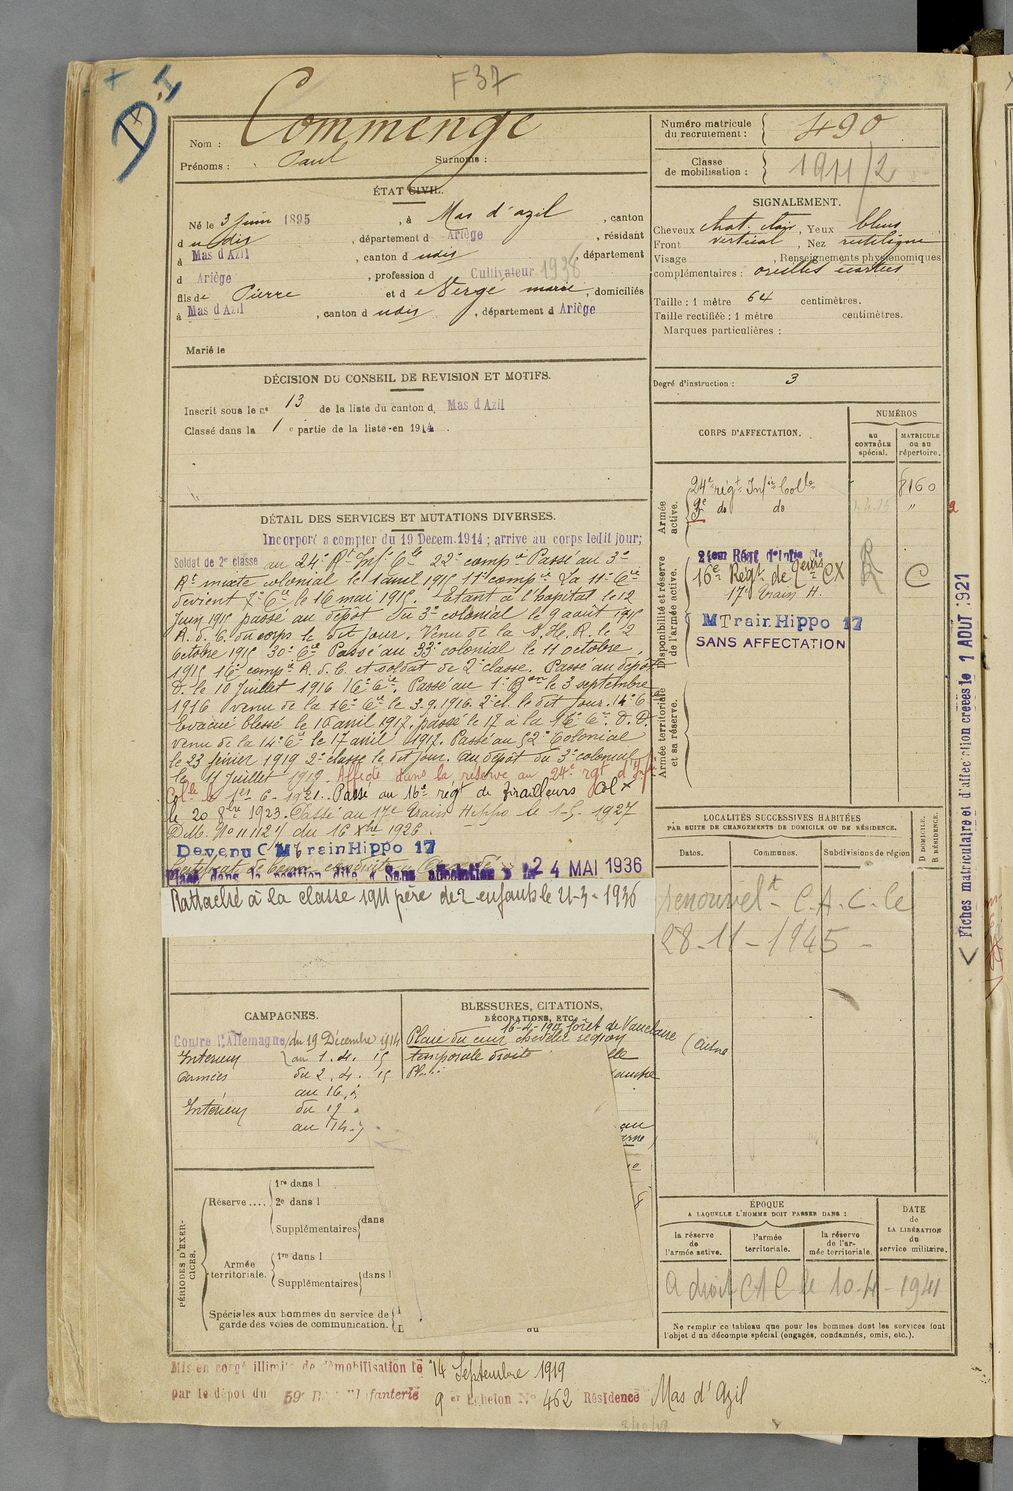 F 37
D.I
Nom : Commenge
Prénoms : Paul Surnoms :
ÉTAT CIVIL.
Né le 3 Juin 1895, à Mas d'azil, canton
d udis, département d Ariège, résidant
à Mas d'Azil, canton d udis, département
d Ariège, profession d Cultivateur 1936
fils de Pierre et d e Verge marie, domiciliés
à Mas d'Azil, canton d udis, département d Ariège
Marié le
DÉCISION DU CONSEIL DE REVISION ET MOTIFS.
Inscrit sous le n° 13 de la liste du canton d Mas d'Azil
Classé dans la 1 e partie de la liste en 1914.
DÉTAIL DES SERVICES ET MUTATIONS DIVERSES.
Incorporé à compter du 19 Décem. 1914 ; arrivé au corps ledit jour;
Soldat de 2e classe au 24e Rt Inf. Cle 22e compie Passé au 3e
Rt mixte colonial le 1 avril 1915 11e compie. La 11e Cie
devient 7e Cie le 16 mai 1915. Etant à l'hopital le 12
Juin 1915 passé au dépôt du 3e colonial le 9 août 1915
R. d. C. du corps le dit jour. Venu de la S.H.R. le 2
Octobre 1915 30e Cie Passé au 33e colonial le 11 octobre
1915 16e compie R. d. C. et soldat de 2e classe. Passé au dépôt
D. le 10 Juillet 1916 16e Cie. Passé au 1e Bon le 3 septembre
1916 venu de la 16e Cie le 3.9.1916. 2e cl. le dit jour. 14e Cie
Evacué blessé le 16 avril 1917, passé le 17 à la 16e Cie. D. D.
venu de la 14e Cie le 17 avril 1917. Passé au 52e Colonial
le 23 février 1919 2e classe le dit jour. Au dépôt du 3e colonial
le 11 Juillet 1919. Affecté dans la réserve au 24e rgt d'Infie
Colle le 1er-6-1921. Passé au 16e régt de tirailleurs Col x
le 20 8bre 1923. Classé au 17e Train Hippo le 1-5-1927
D.M. No 11112/ du 16 Xbre 1926.
Devenu C M Train Hippo 17
Placé dans la position dite « Sans affectation » le 24 MAI 1936
Rattaché à la classe 1911 père de 2 enfants le 21-3-1936
CAMPAGNES.
Contre l'Allemagne du 19 Décembre 1914
Intérieur au 1. 4. 15
Armées du 2. 4. 15
au 16.
Intérieur du 17
au 14.
BLESSURES, CITATIONS,
DÉCORATIONS, ETC.
16-4-1917 forêt de Vauclerc (Aisne
Plaie du cuir chevelu région
temporale droite
PÉRIODES D'EXERCICES.
Réserve .... 1re dans l
2e dans l
Supplémentaires dans
Armée territoriale. 1re dans l
Supplémentaires dans l
Spéciales aux hommes du service de
garde des voies de communication.
au
Mis en congé illimité de démobilisation le 14 Septembre 1919
par le dépôt du 59e R d'Infanterie 9 er Echelon No 462 Résidence Mas d'Azil
Numéro matricule
du recrutement : 490
Classe
de mobilisation : 1911/2
SIGNALEMENT.
Cheveux chat. clair, Yeux bleus
Front vertical, Nez rectiligne
Visage , Renseignements physionomiques
complémentaires : oreilles écartées
Taille : 1 mètre 64 centimètres.
Taille rectifiée : 1 mètre centimètres.
Marques particulières :
Degré d'instruction : 3
CORPS D'AFFECTATION.
NUMÉROS
au
CONTRÔLE
spécial.
MATRICULE
ou au
répertoire.
Armée
active.
24e régt Infie Colle 8160
3e do do "
Disponibilité et réserve
de l'armée active.
24em Régt d'Infie Cle
16e Régt de Teurs CX C
17e Train H.
M Train Hippo 17
SANS AFFECTATION
Armée territoriale
et sa réserve.
LOCALITÉS SUCCESSIVES HABITÉES
PAR SUITE DE CHANGEMENTS DE DOMICILE OU DE RÉSIDENCE.
Dates. Communes. Subdivisions de région
D DOMICILE.
R RÉSIDENCE.
renouvelt C.A.C. le
28-11-1945
ÉPOQUE
A LAQUELLE L'HOMME DOIT PASSER DANS :
la réserve
de
l'armée active.
l'armée
territoriale.
la réserve
de l'ar-
mée territoriale.
DATE
de
LA LIBÉRATION
du
service militaire.
a droit CAC le 10-4-1941
Ne remplir ce tableau que pour les hommes dont les services font
l'objet d'un décompte spécial (engagés, condamnés, omis, etc.).
< Fiches matriculaire et d'affectation créées le 1 AOUT 1921